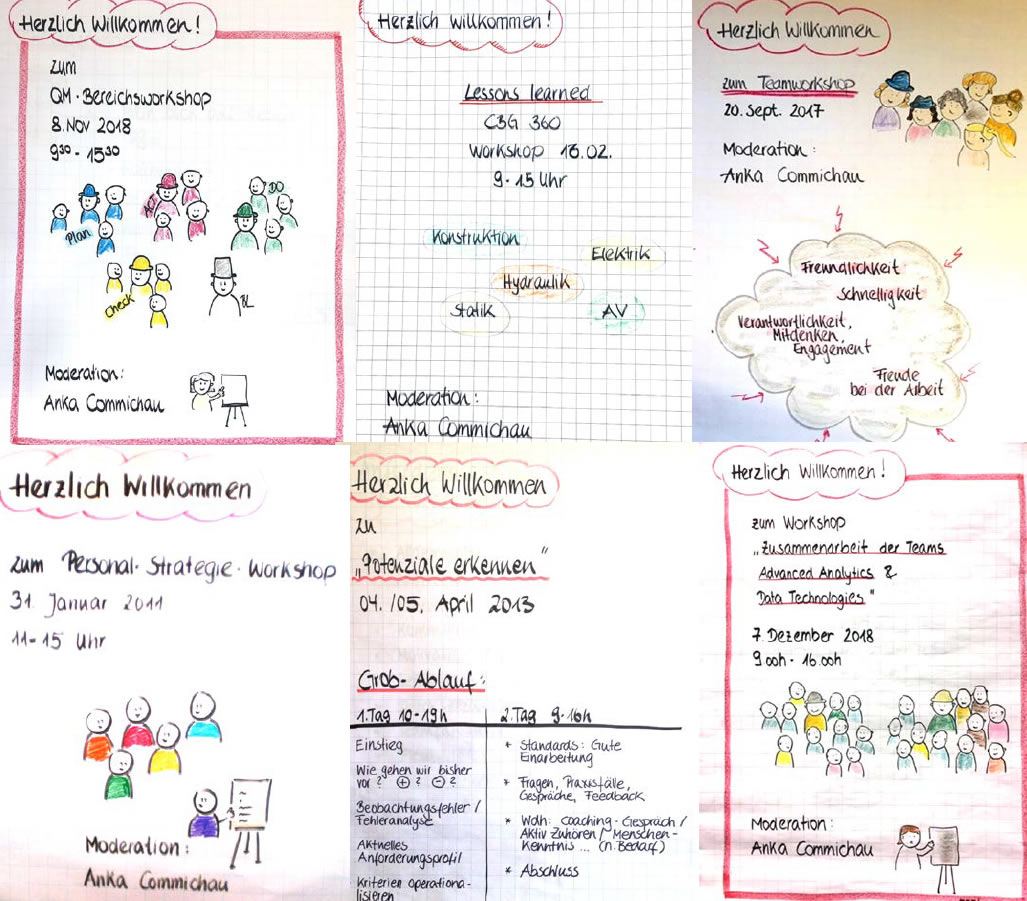 Herzlich Willkommen!
zum
QM-Bereichsworkshop
8. Nov 2018
9³⁰ - 15³⁰
Plan
ACT
DO
Check
BL
Moderation:
Anka Commichau
Herzlich Willkommen!
Lessons learned
CBG 360
Workshop 13.02.
9-15 Uhr
Konstruktion
Elektrik
Hydraulik
Statik
AV
Moderation:
Anka Commichau
Herzlich Willkommen
zum Teamworkshop
20. Sept. 2017
Moderation:
Anka Commichau
Freundlichkeit
Schnelligkeit
Verantwortlichkeit,
Mitdenken,
Engagement
Freude
bei der Arbeit
Herzlich Willkommen
zum Personal-Strategie-Workshop
31. Januar 2011
11-15 Uhr
Moderation:
Anka Commichau
Herzlich Willkommen
zu
„Potenziale erkennen“
04./05. April 2013
Grob-Ablauf:
1.Tag 10-19h
Einstieg
Wie gehen wir bisher
vor? ⊕? ⊖?
Beobachtungsfehler /
Fehleranalyse
Aktuelles
Anforderungsprofil
Kriterien operationa-
lisieren
2.Tag 9-16h
* Standards: Gute
Einarbeitung
* Fragen, Praxisfälle,
Gespräche, Feedback
* Wdh: Coaching-Gespräch /
Aktiv Zuhören / Menschen-
Kenntnis ... (n. Bedarf)
* Abschluss
Herzlich Willkommen!
zum Workshop
„Zusammenarbeit der Teams
Advanced Analytics &
Data Technologies“
7. Dezember 2018
9.00h - 16.00h
Moderation:
Anka Commichau